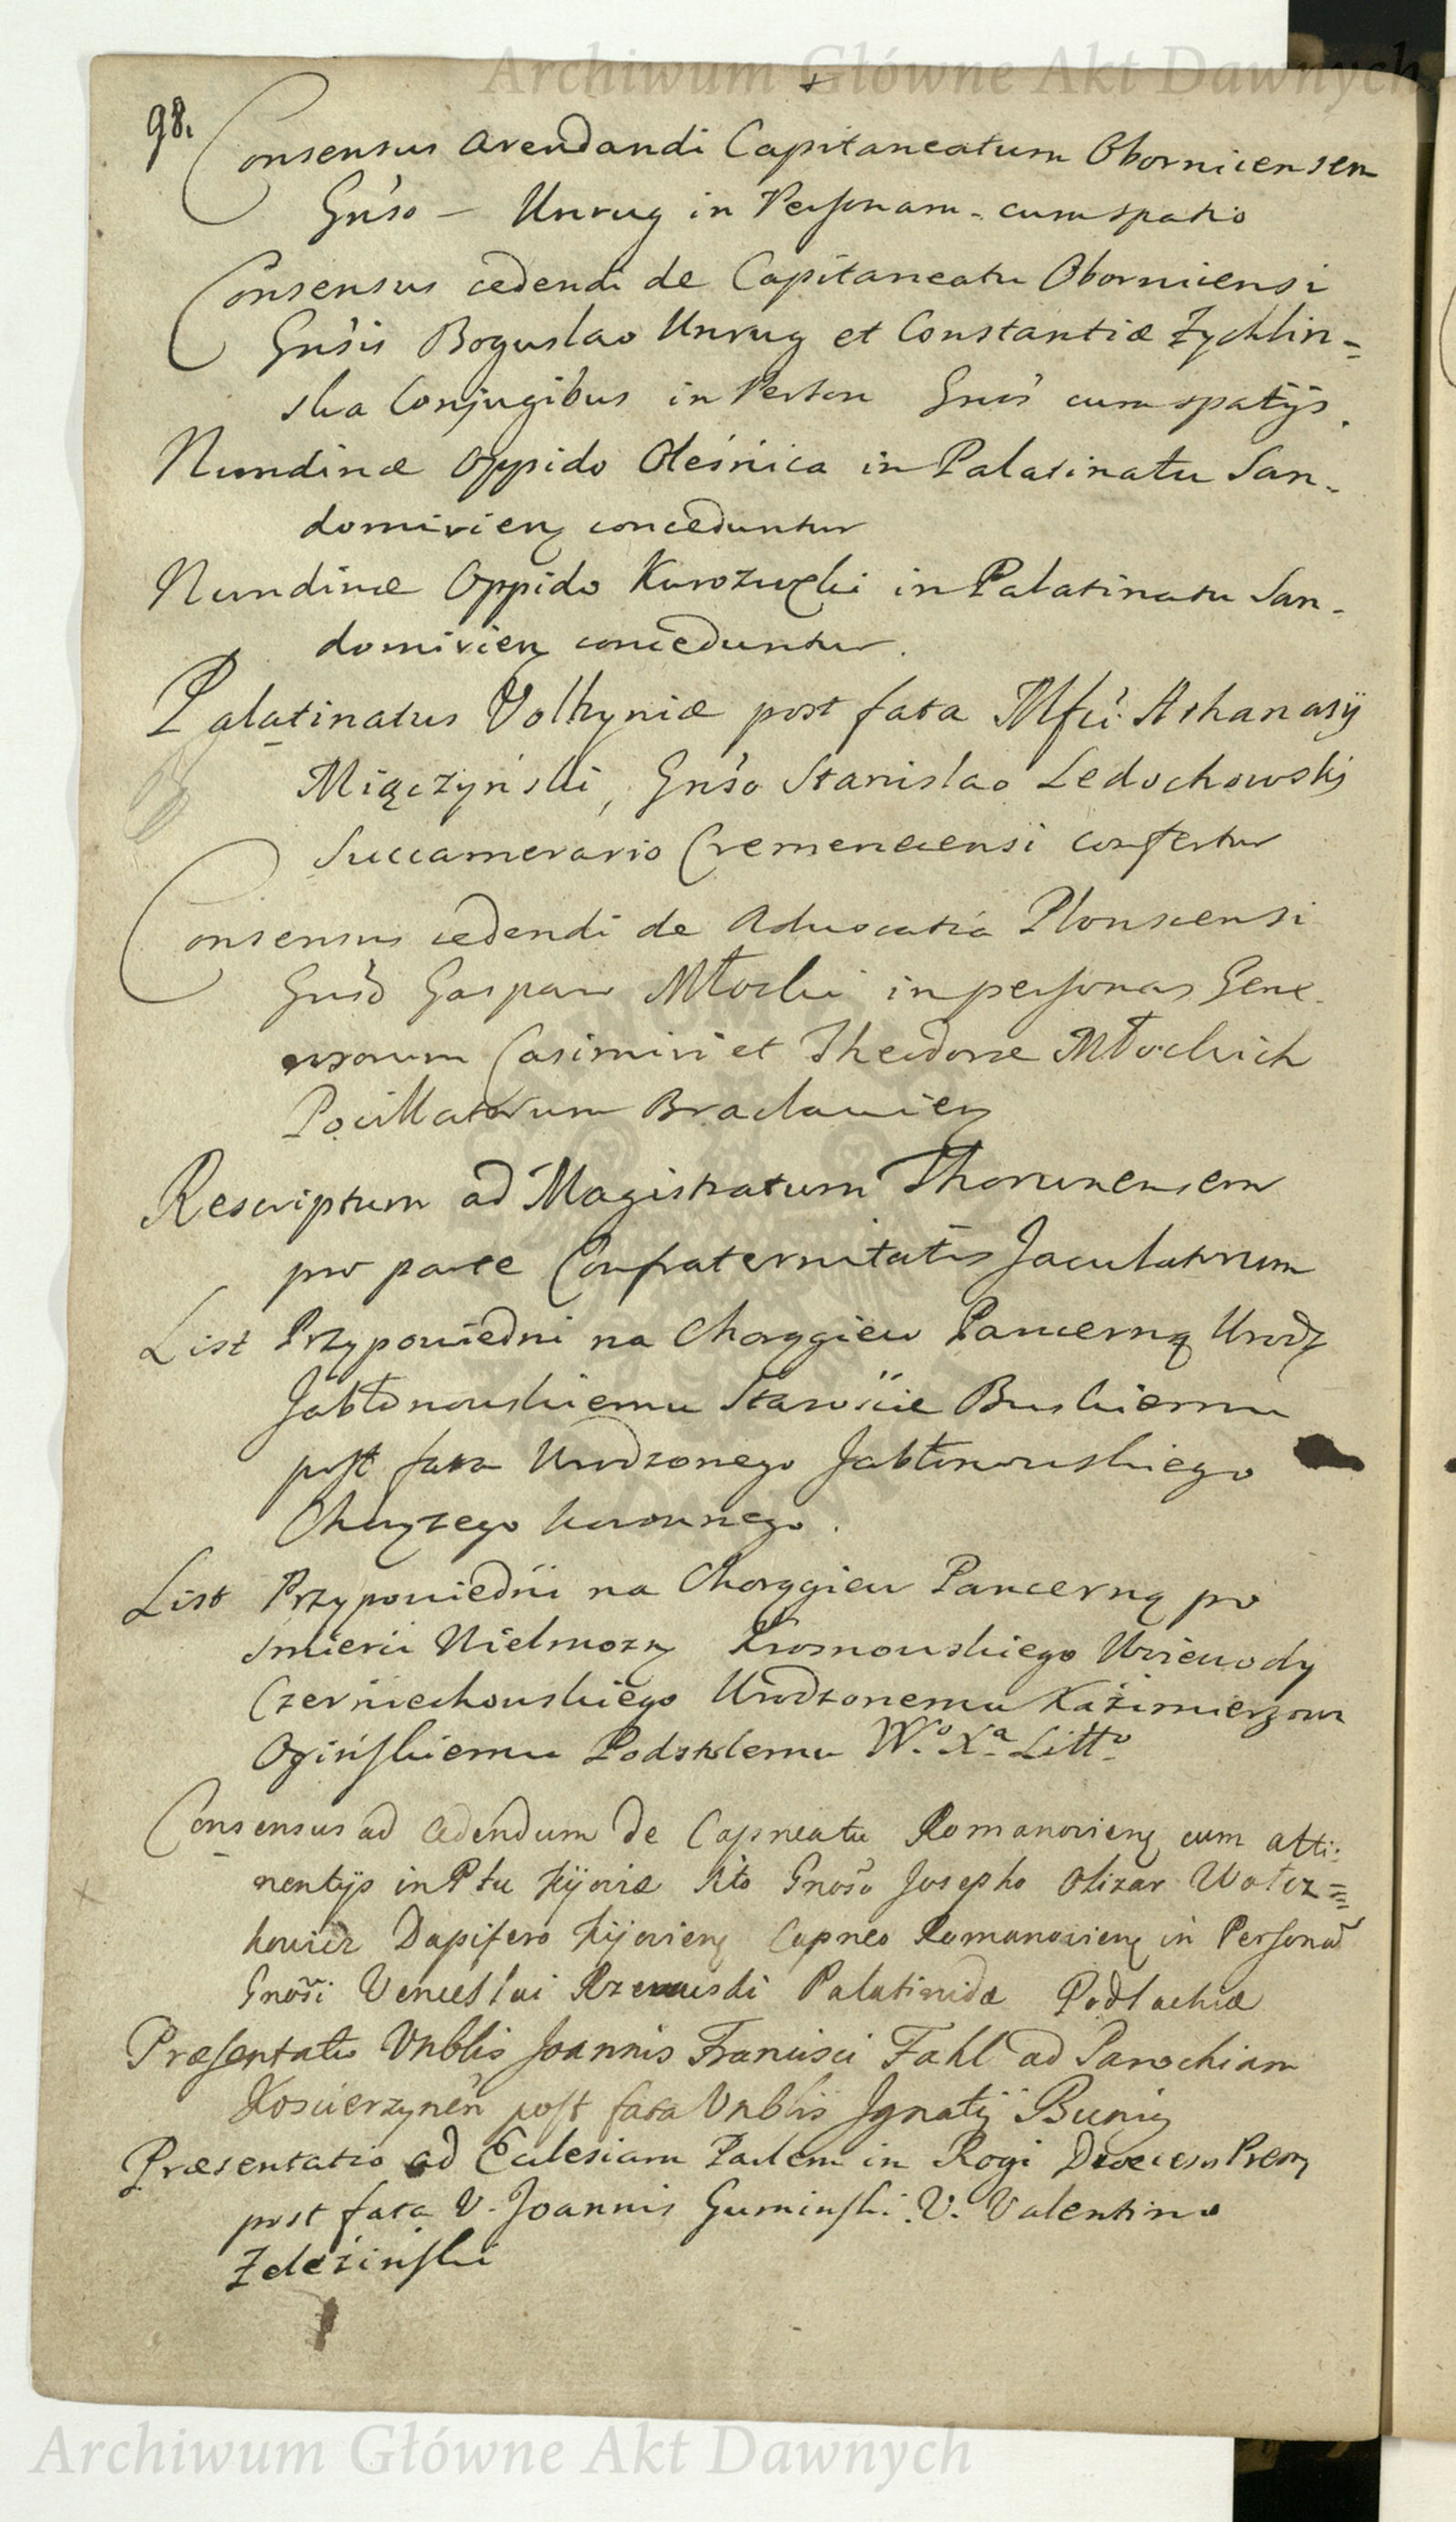 Archiwum Główne Akt Dawnych
98.
Consensus arendandi Capitaneatum Obornicensem
Gnso — Unrug in Personam - cum spatio
Consensus cedendi de Capitaneatu Obornicensi
Gnsis Boguslao Unrug et Constantiæ Zychlin=
ska Conjugibus in Person Gnos cum spatijs.
Nundinæ Oppido Oleśnica in Palatinatu San-
domirien conceduntur
Nundinæ Oppido Kurozwęki in Palatinatu San-
domirien conceduntur.
Palatinatus Volhyniæ post fata Mfci Athanasij
Miączyński, Gnso Stanislao Ledochowski
Succamerario Cremenecensi confertur
Consensus cedendi de Advocatia Plonscensi
Gnso Gaspar Młocki in personas Gene-
rosorum Casimiri et Theodore Młockich
Pocillatorum Braclavien
Rescriptum ad Magistratum Thorunensem
pro parte Confraternitatis Jaculatorum
List Przypowiedni na Chorągiew Pancerną Urodz
Jabłonowskiemu Staroście Buskiemu
post fata Urodzonego Jabłonowskiego
Chorązego koronnego.
List Przypowiedni na Chorągiew Pancerną po
smierci Wielmozn Krosnowskiego Woiewody
Czerniechowskiego Urodzonemu Kaźimierzowi
Ogińskiemu Podstolemu W.o X.a Litt.o
Consensus ad cedendum de Capneatu Romanovien cum atti-
nentijs in Ptu Kijoviæ sito Gnoso Josepho Olizar Wołcz=
kowicz Dapifero Kijovien Capneo Romanovien in Personam
Gnosi Venceslai Rzewuski Palatinidæ Podlachiæ
Præsentatio Vnblis Joannis Francisci Fahl ad Parochiam
Koscierzynen post fata Vnblis Jgnatij Buni
Præsentatio ad Ecclesiam Parlem in Rogi Diœcesis Prem
post fata V. Joannis Guminski V. Valentino
Zeleźinski
Archiwum Główne Akt Dawnych